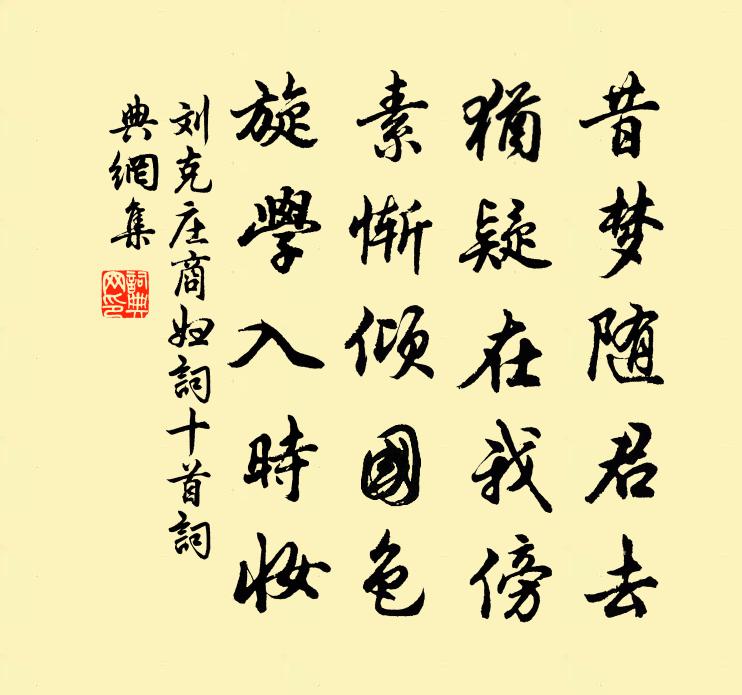 昔梦随君去
猶疑在我傍
素慚倾國色
旋學入時妆
刘克庄商妇詞十首詞
典網集
詞典网印